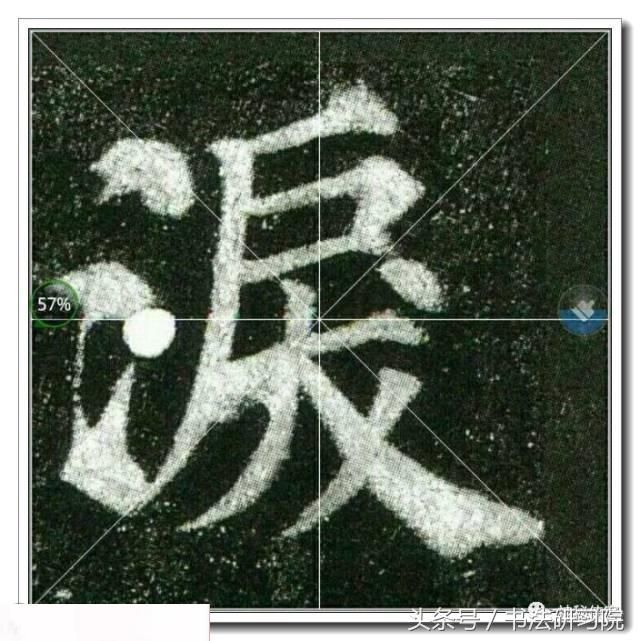 淚
57%
头条号 / 书法研习院